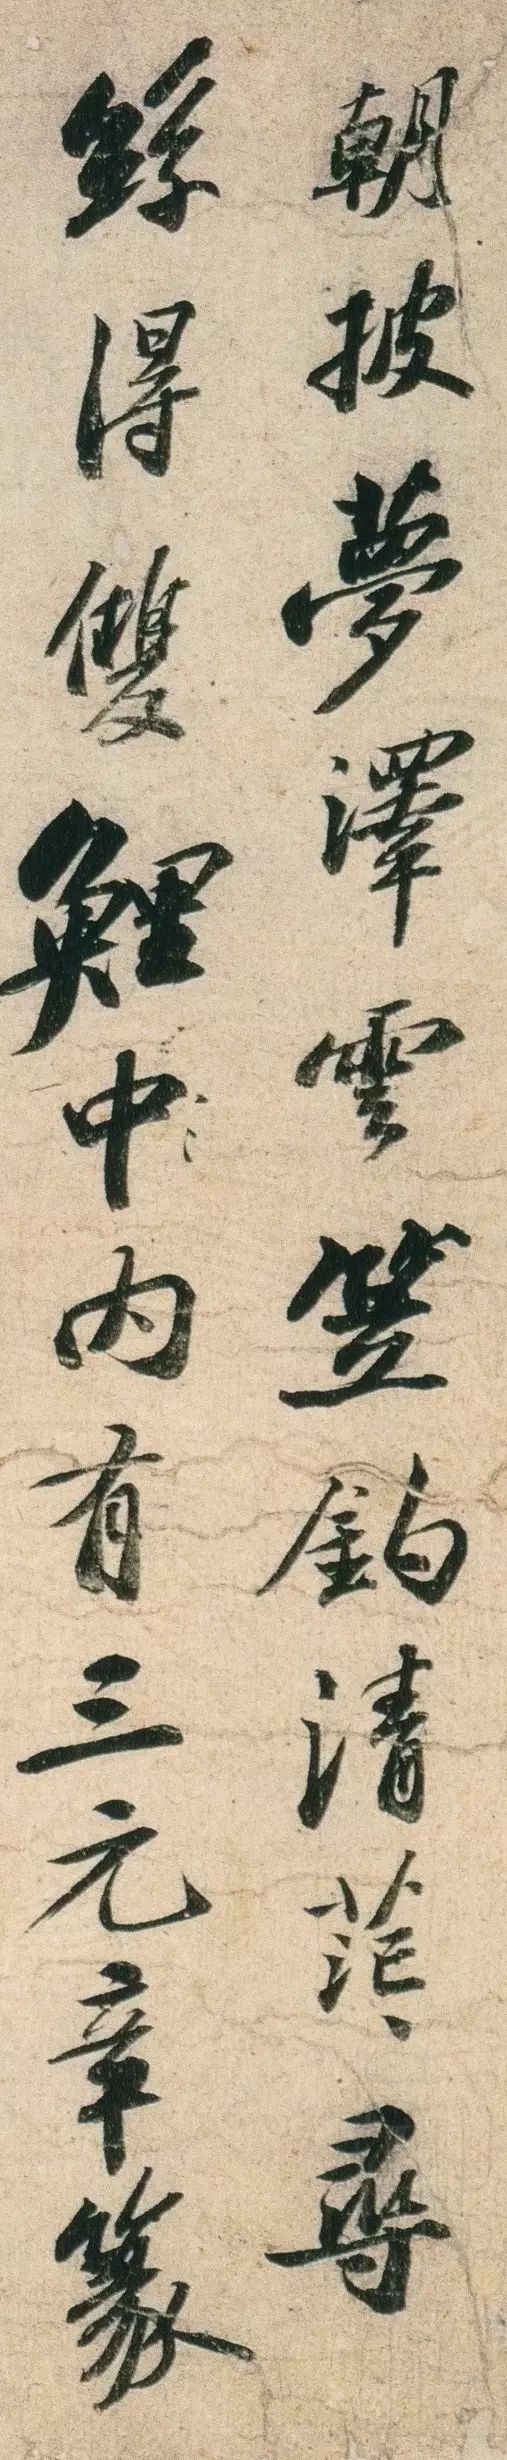 朝披夢澤雲笠釣清茫〻尋
繇得雙鯉中內有三元章篆